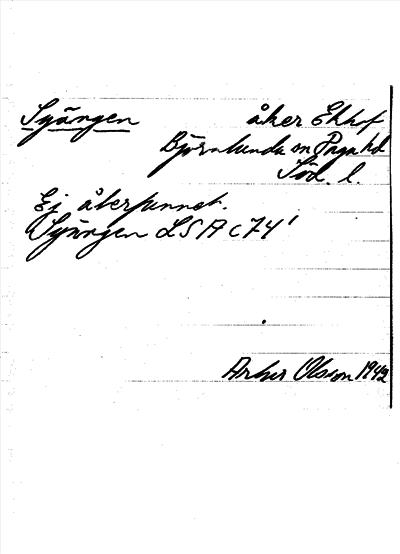 Syängen åker Ekhof
Björnlunda sn Daga hd
Söd. l.
Ej återfunnet.
Syängen LSA C74'
Arthur Olsson 1942